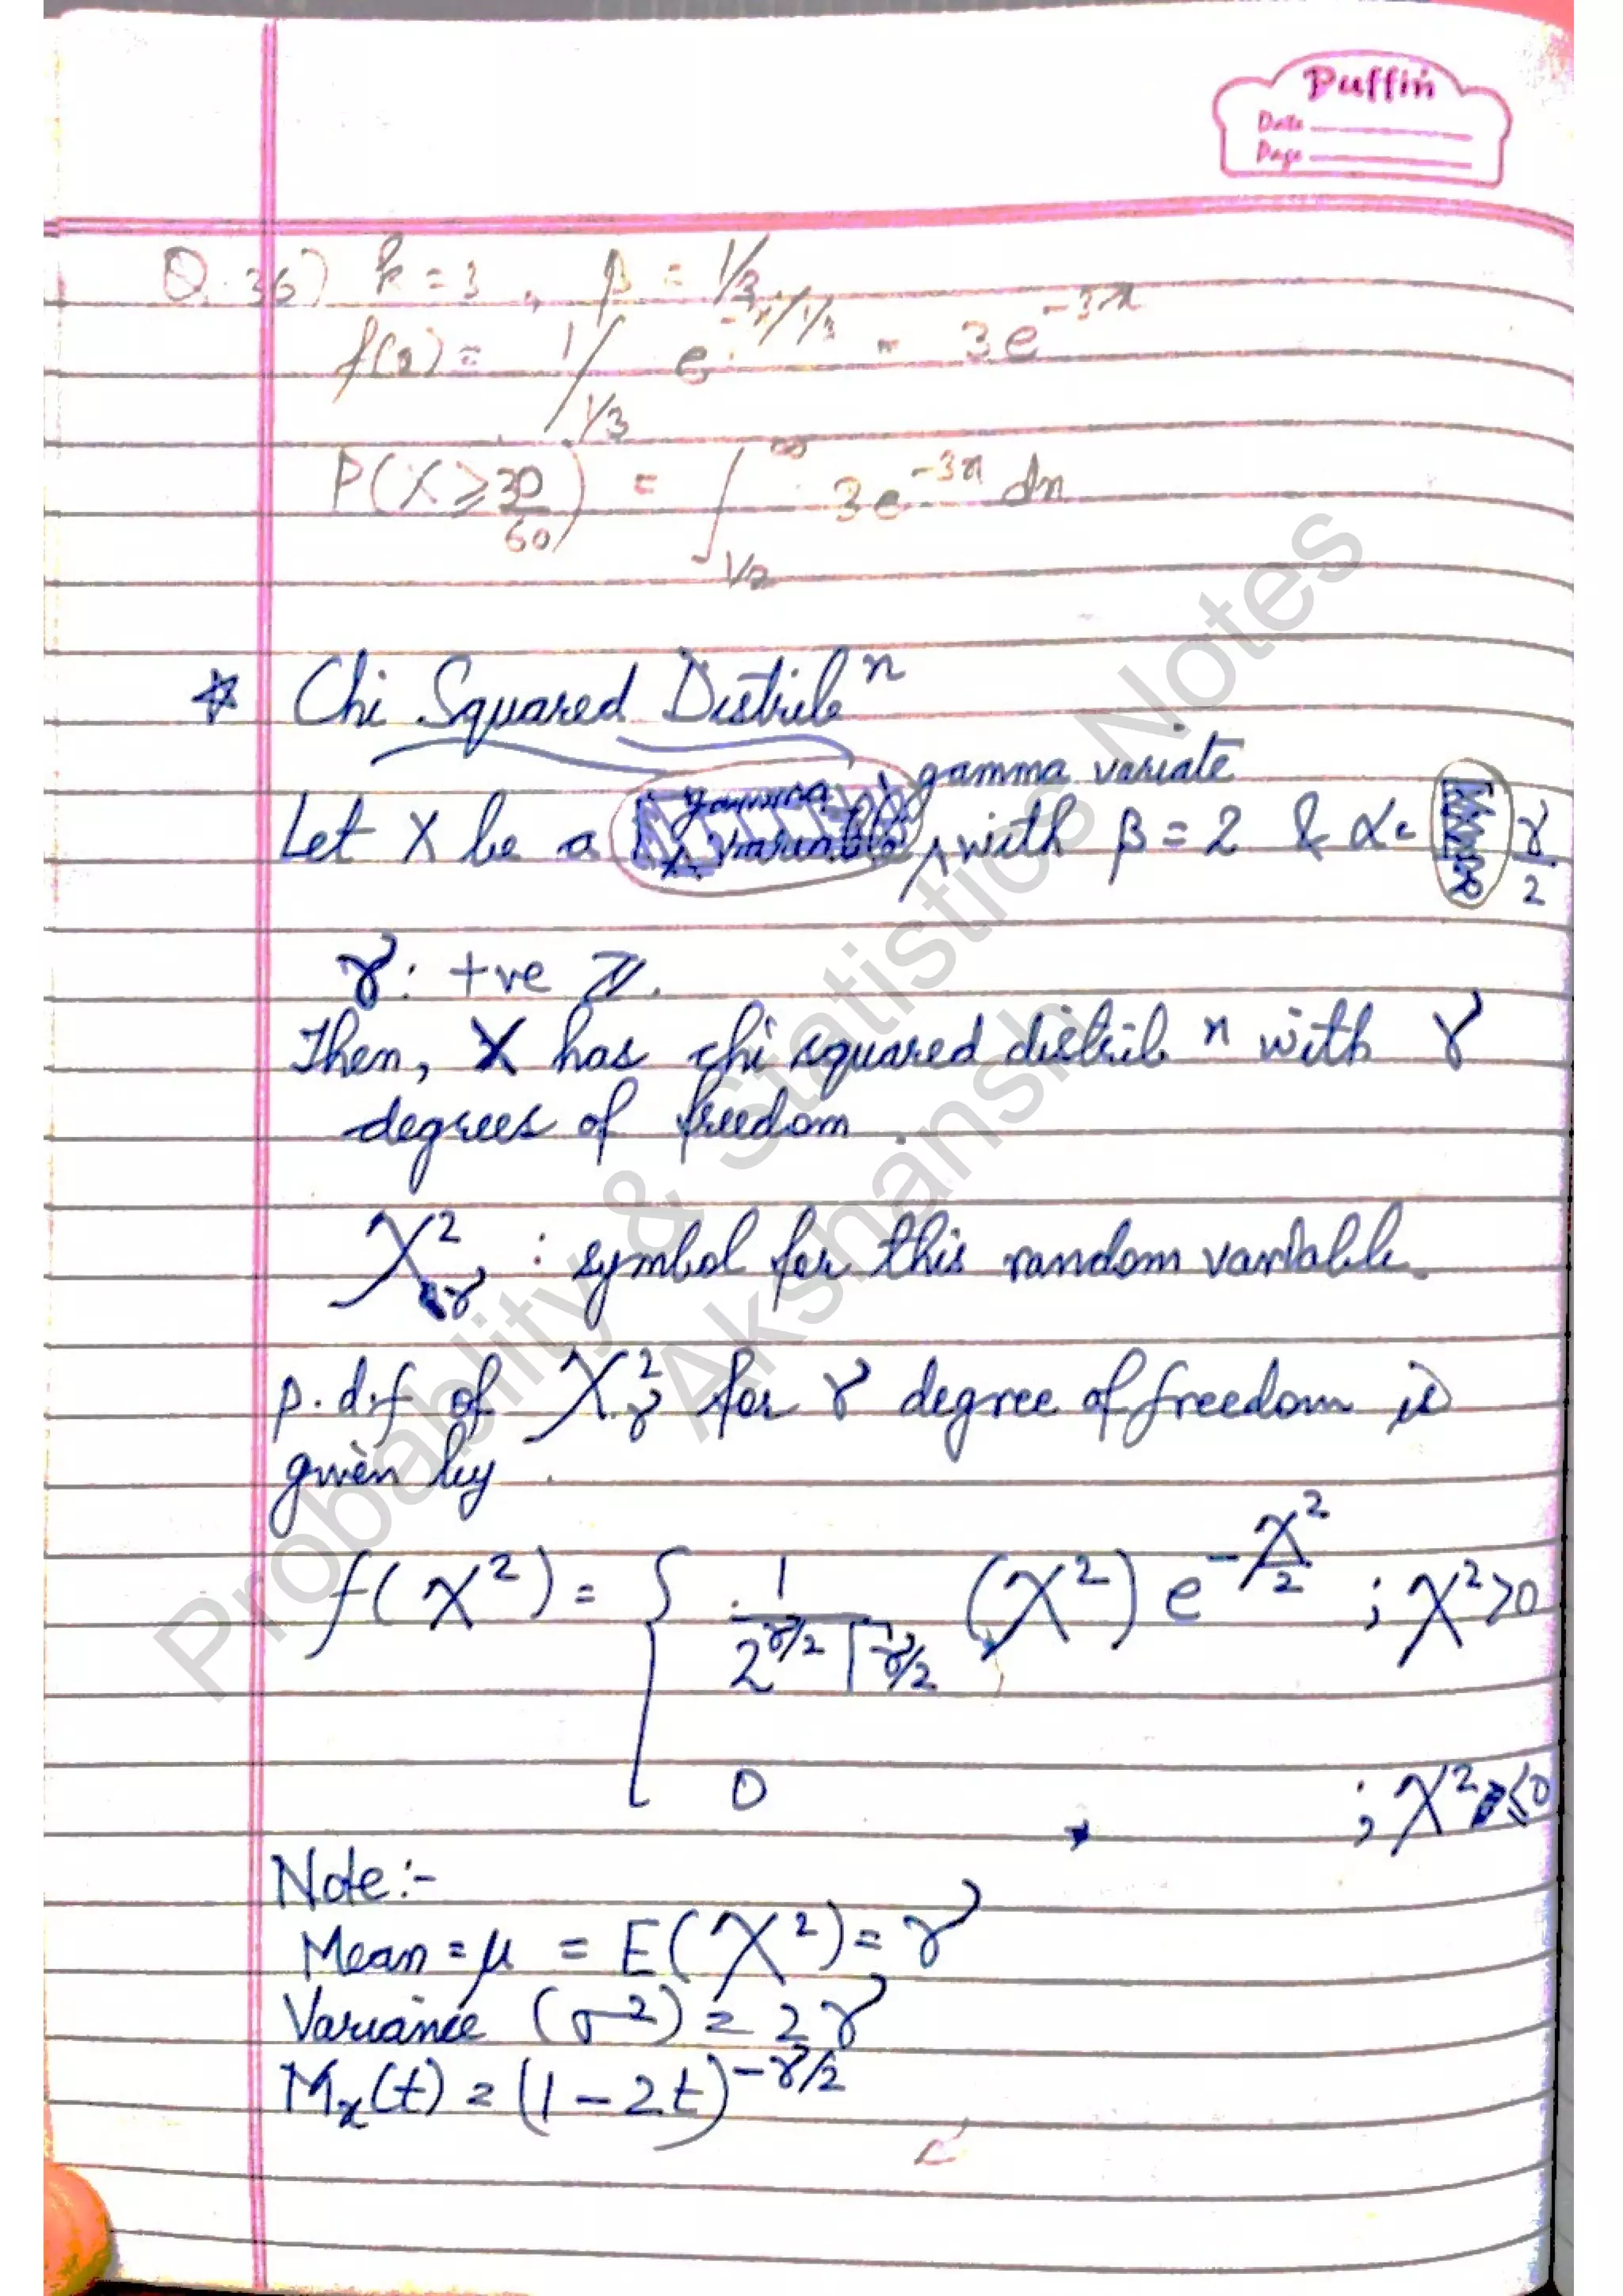 Puffin
Date
Page
Q. 36) k = 3 , β = 1/3
f(x) = 1/1/3 e^-x/1/3 = 3e^-3x
P(X ≥ 30/60) = ∫_1/2^∞ 3e^-3x dx
☆ Chi Squared Distrib^n
gamma variate
Let X be a ^ with β = 2 & α = γ/2
γ : +ve ℤ.
Then, X has chi squared distrib^n with γ
degrees of freedom.
χ²_γ : symbol for this random variable.
p.d.f of χ²_γ for γ degree of freedom is
given by
f(χ²) = { 1/(2^γ/2 Γγ/2) (χ²) e^-χ²/2 ; χ²>0
0 ; χ² ≤0
Note :-
Mean = μ = E(χ²) = γ
Variance (σ²) = 2γ
Mx(t) = (1 - 2t)^-γ/2
Probability & Statistics Notes
Akshansh